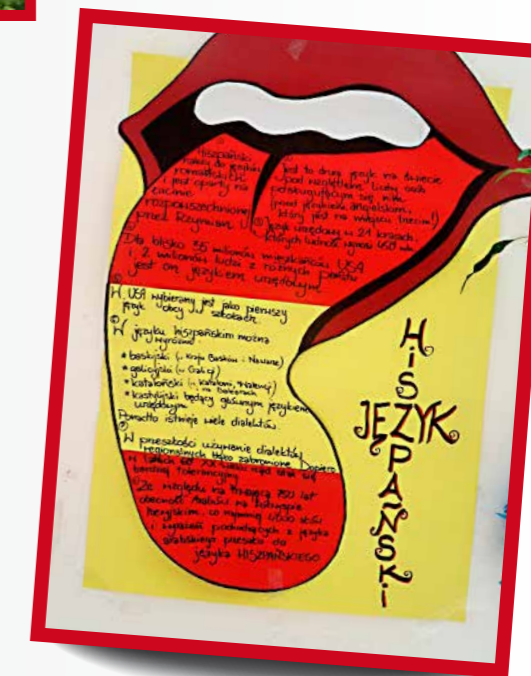 Hiszpański
należy do języków
romańskich
i jest oparty na
łacinie
rozpowszechnionej
przez Rzymian.
Jest to drugi język na świecie
pod względem liczby osób
posługującym się nim
(przed językiem angielskim,
który jest na miejscu trzecim!)
Język urzędowy w 21 krajach,
których ludność wynosi 450 mln
Dla blisko 35 milionów mieszkańców USA
i 2 milionów ludzi z różnych państw
jest on językiem urzędowym
W USA wybierany jest jako pierwszy
język obcy w szkołach.
W języku hiszpańskim można
wyróżnić:
* baskijski (w Kraju Basków i Nawarze)
* galicyjski (w Galicji)
* kataloński (w Katalonii, Walencji
na Balearach)
* kastylijski będący głównym językiem
urzędowym
Ponadto istnieje wiele dialektów.
W przeszłości używanie dialektów
regionalnych było zabronione. Dopiero
w latach 60 XX wieku
bardziej tolerancyjny
Ze względu na trwającą 750 lat
obecność Arabów na Półwyspie
Iberyjskim, co najmniej 4000 słów
i wyrażeń pochodzących z języka
arabskiego przeszło do
języka HISZPAŃSKIEGO
HISZPAŃSKI
JĘZYK